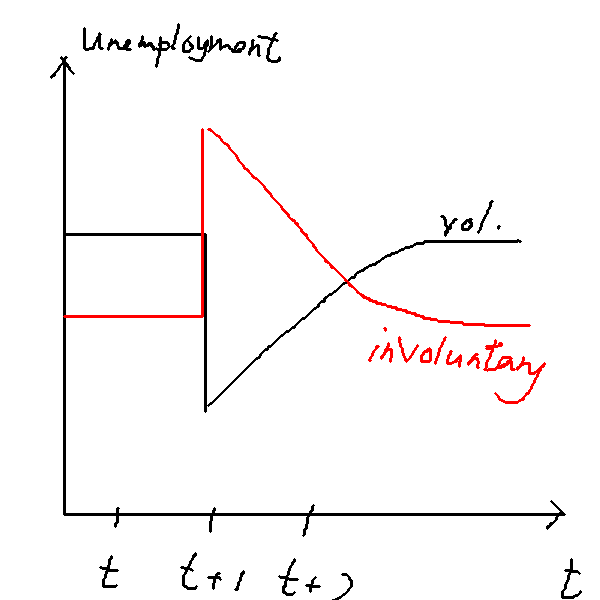 Unemployment
vol.
involuntary
t t+1 t+2 t